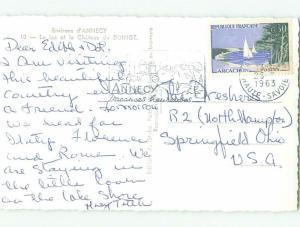 Environs d'ANNECY
10 - Le lac et le Château de DUINGT.
Dear Edith &
I am visiting
this beautiful
country
a friend.
we head for
Italy Florence
and Rome. We
are staying in
the little town
on the lake shore
RÉPUBLIQUE FRANÇAISE
ARCACHON
ANNECY
1963
HAUTE-SAVOIE
R 2 (North Hampton)
Springfield Ohio
U.S.A.